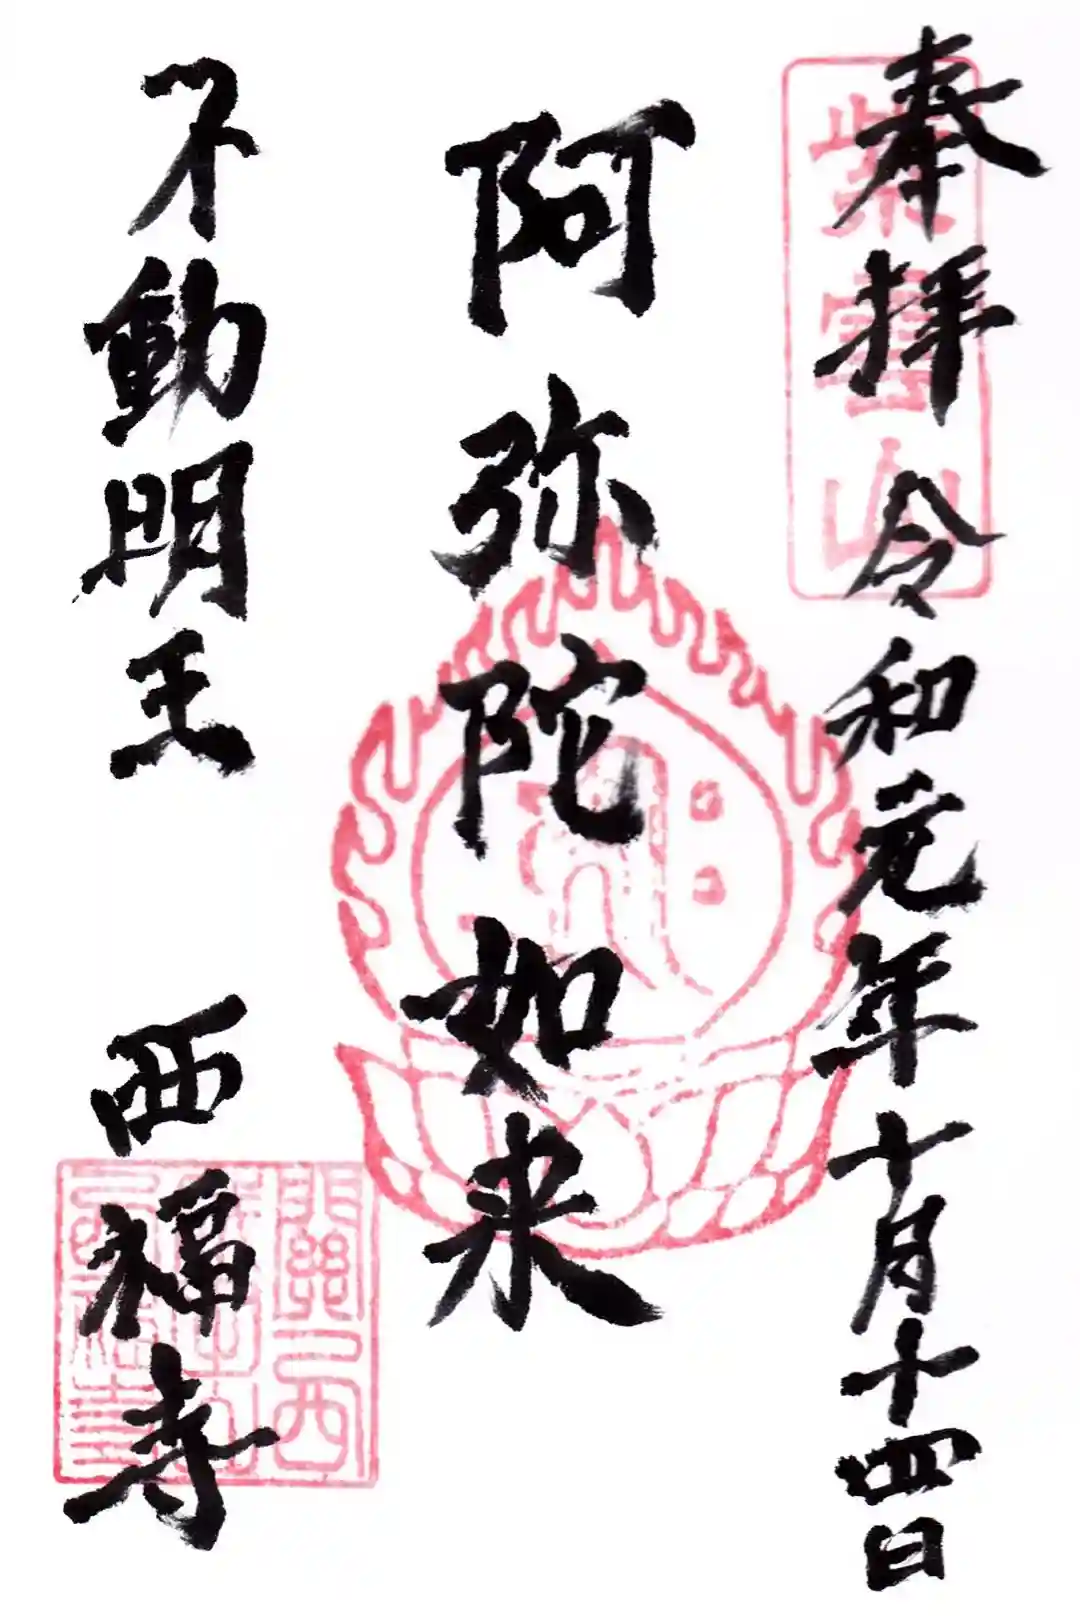 奉拝 令和元年十月十四日
紫雲山
阿弥陀如来
不動明王 西福寺